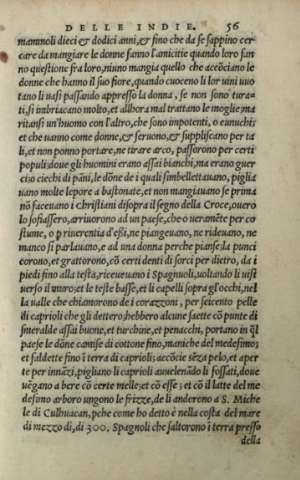 DELLE INDIE. 56
mamnoli dieci & dodici anni, & fino che da se sappino cer
care da mangiare le donne fanno l'amicitie quando loro fan
no questione fra loro, niuno mangia quello che accōciano le
donne che hanno il suo fiore, quando cuoceno li lor uini uuo
tano li uasi passando appresso la donna, se non sono tura=
ti, si imbriacano molto, et allhora mal trattano le moglie; ma
ritansi un'huomo con l'altro, che sono impotenti, o eunuchi;
et che uanno come donne, & seruono, & supplíscano per ta
li, et non ponno portare, ne tirare arco, passorono per certi
populi doue gli huomini erano assai bianchi, ma erano guer
ci o ciechi di pāni, le dōne de i quali simbellettauano, piglia
uano molte lepore a bastonate, et non mangiauano se prima
nō faceuano i Christiani disopra il segno della Croce, ouero
lo sofiassero, arriuorono ad un paese, che o ueramēte per co
stume, o p riuerentia d'eßi, ne piangeuano, ne rideuano, ne
manco si parlauano, e ad una donna perche pianse, la punci
corono, et grattorono, cō certi denti di sorci per dietro, da i
piedi fino alla testa, riceueuano i Spagnuoli, uoltando li uisi
uerso il muro; et le teste basse, et li capelli sopra gl'occhi, nel
la ualle che chiamorono de i corazzoni, per seicento pelle
di caprioli che gli dettero; hebbero alcune saette cō punte di
smeralde assai buone, et turchine, et penacchi, portano in q̄l
paese le dōne camise di cottone fino, maniche del medesimo;
et faldette fino i terra di caprioli; accōcie sēza pelo, et aper
te per innāzi, pigliano li caprioli auuelenādo li fossati, doue
uēgano a bere cō certe melle; et cō esse; et cō il latte del me
desimo arboro ungono le frizze, de li anderono a S. Miche
le di Culhuacan, pche come ho detto è nella costa del mare
di mezzo dì, di 300. Spagnoli che saltorono i terra presso
della